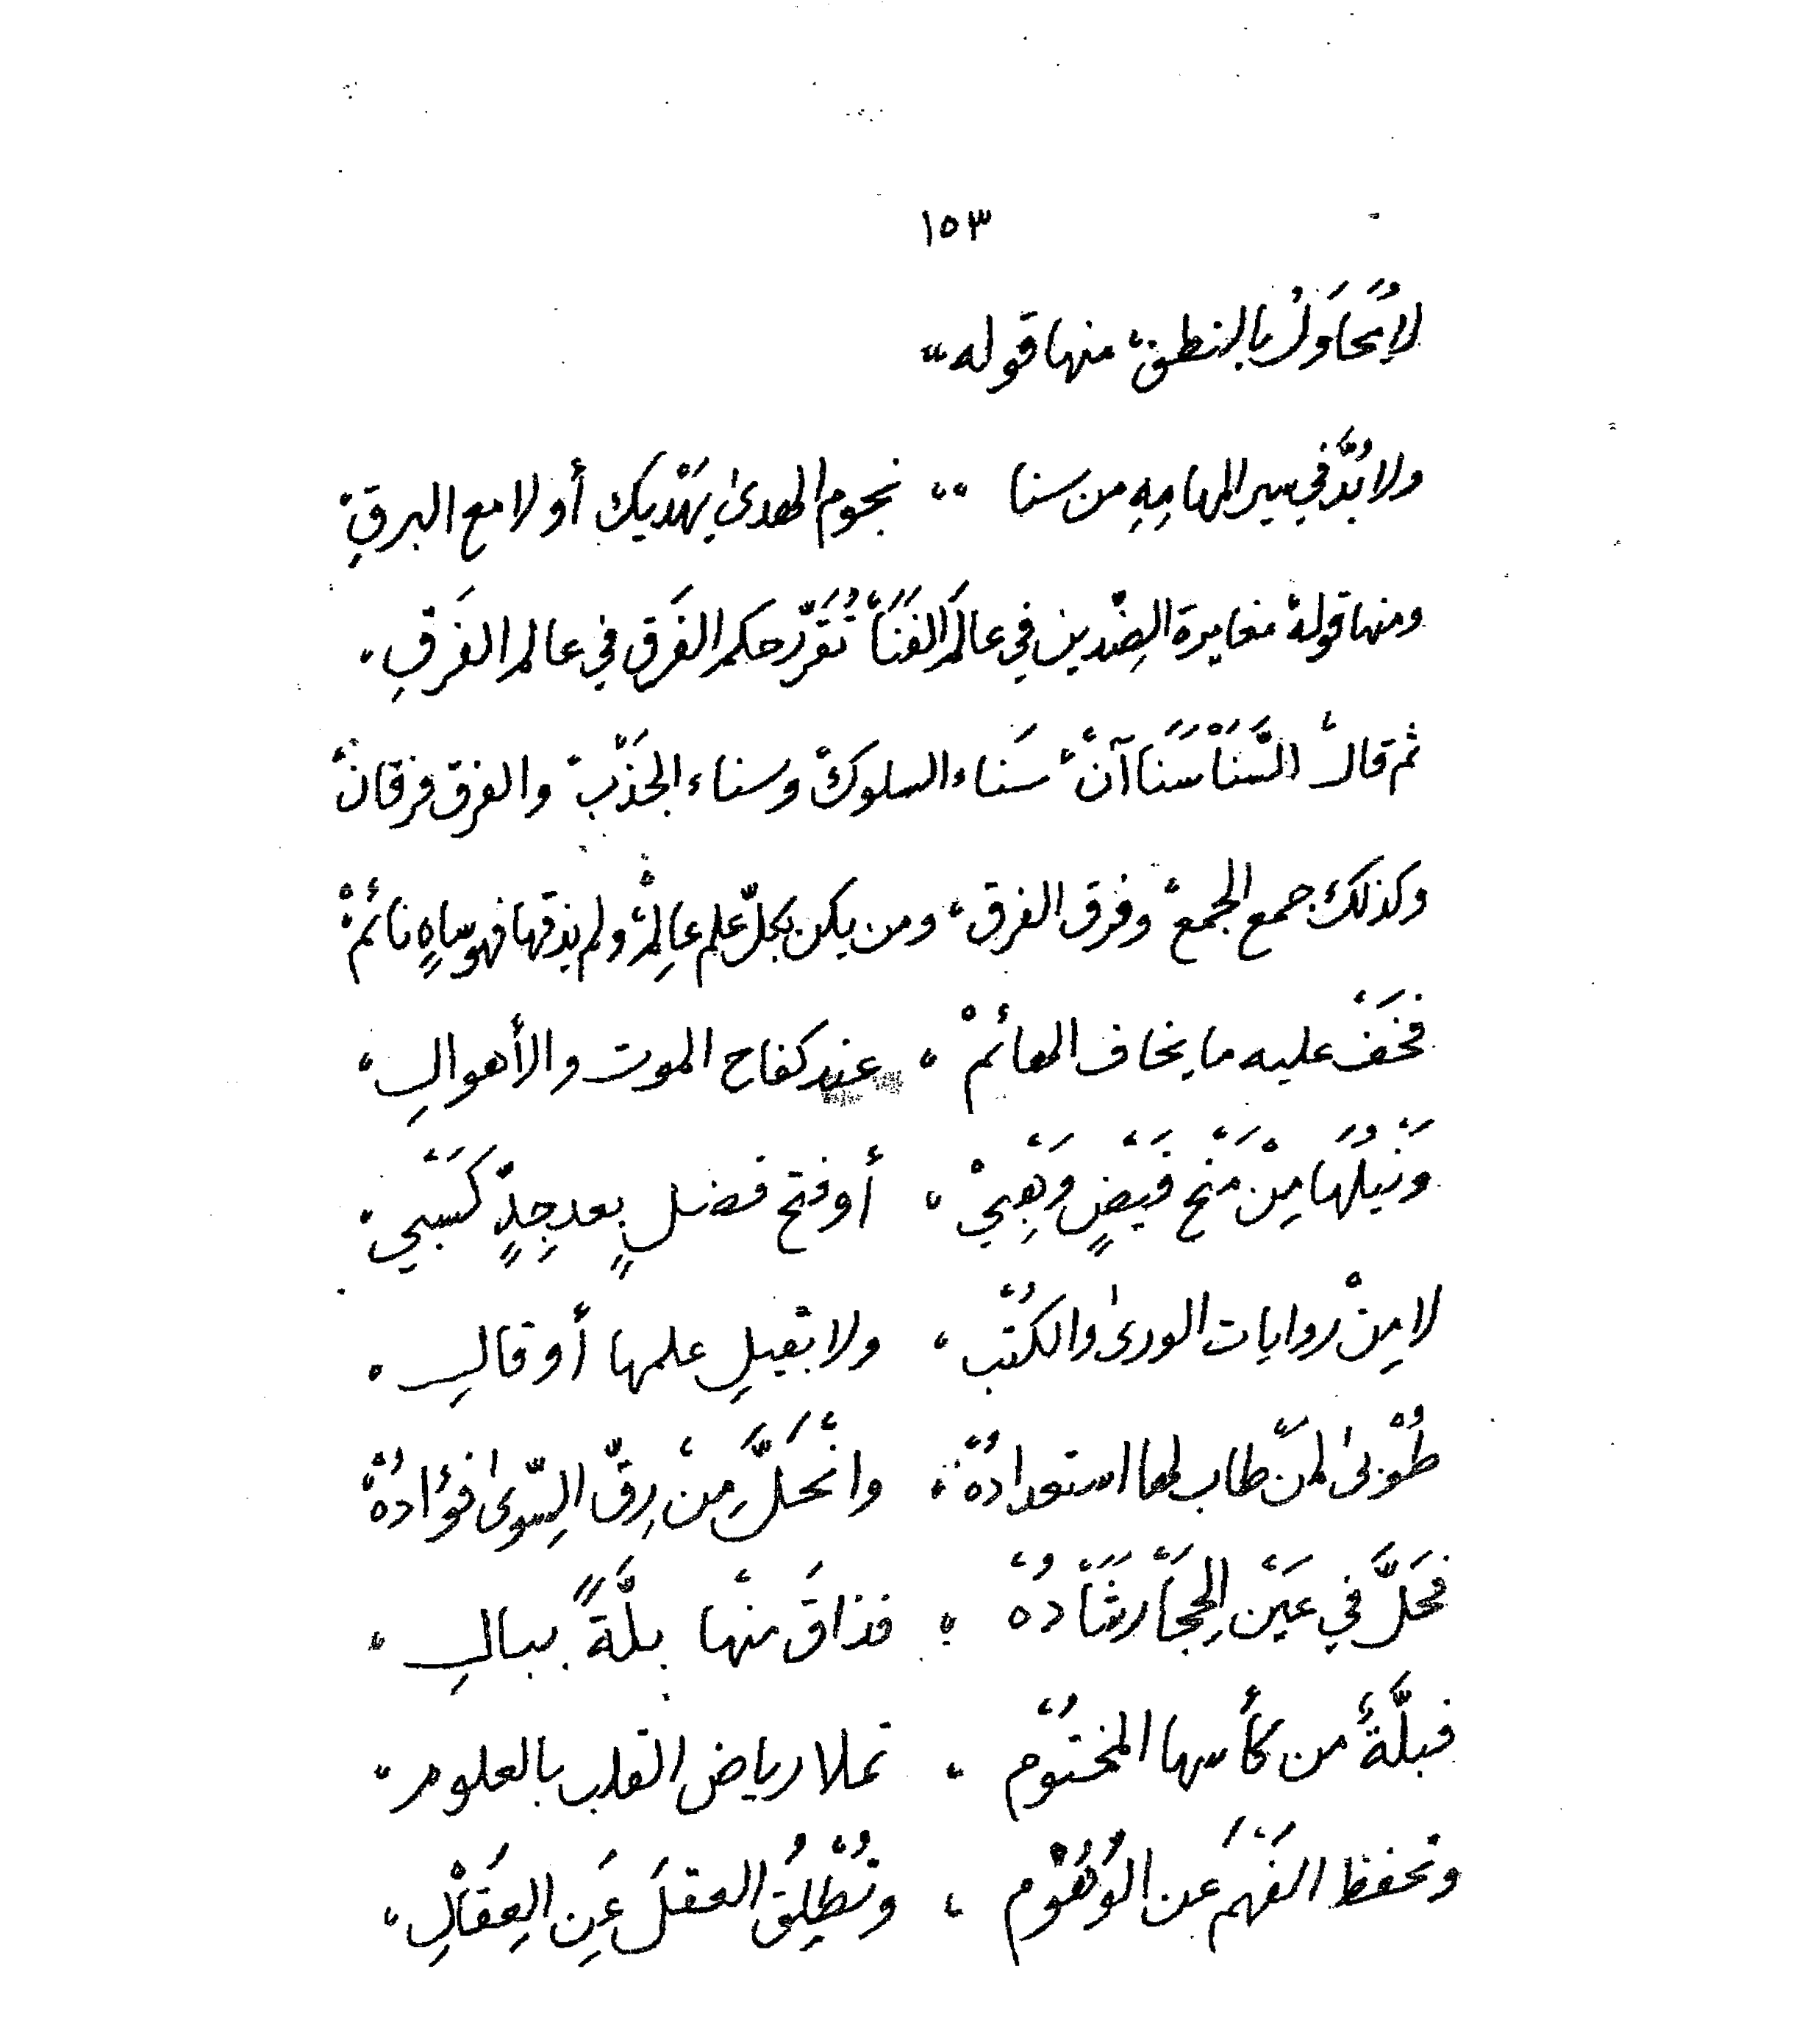 ١٥٣
لا يُحَاوَلُ بالنطق، منها قوله ،،
ولا بُدَّ في سير المهامِهِ من سنا ،، نجوم الهدىٰ يهْديك أو لامع البرقِ،
ومنها قوله، مغايرة الضِدين في عالَم الفَنَا، تُقَرّر حكم الفَرق في عالم الفَرقِ،
ثم قال، السَّنَا سَنَاآنْ، سَناء السلوكْ، وسناء الجَذْبْ، والفرق فرقانْ،
وكذلك جمع الجمعْ، وفرق الفرق، ومن يكن بكلّ علم عالِمْ، ولم يذقها فهو ساهٍ نائمْ،
فخَفْ عليه ما يخاف الهائمْ ، عند كفاح الموت والأهوالِ ،
وَنَيْلُهَا مِنْ مَنْح فَيْضٍ وَهْبِيْ ، أو فتح فضلٍ بعد جِدٍّ كَسْبَي ،
لا مِنْ روايات الورىٰ والكُتْب ، ولا بقيلِ علمها أو قالِ ،
طُوْبىٰ لمنْ طاب لها استعدادُهْ ، وانْحَلَّ مِنْ رِقّ السِّوىٰ فؤادُهْ
فَحَلَّ في عَيْنِ الحِجَا رشَادُهْ ، فذاقَ منْها بلَّةً ببالِ ،
فبلَّةٌ من كأسها المختُوْم ، تملا رياض القلب بالعلوم ،
وتحفظ الفَهْمَ عن الوُهُوْم ، وتُطْلِقُ العقلَ عَنِ العِقَالِ ،